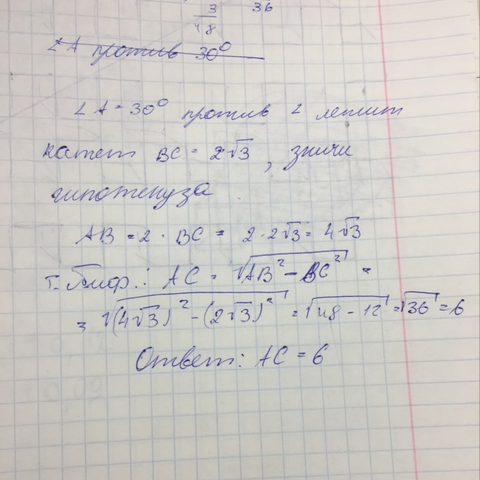 3
18
36
∠A против 30°
∠A = 30° против ∠ лежит
катет BC = 2√3, значи
гипотенуза
AB = 2 · BC = 2·2√3 = 4√3
т. Пиф.: AC = √AB² - BC² =
= √(4√3)² - (2√3)² = √48 - 12 = √36 = 6
Ответ: AC = 6